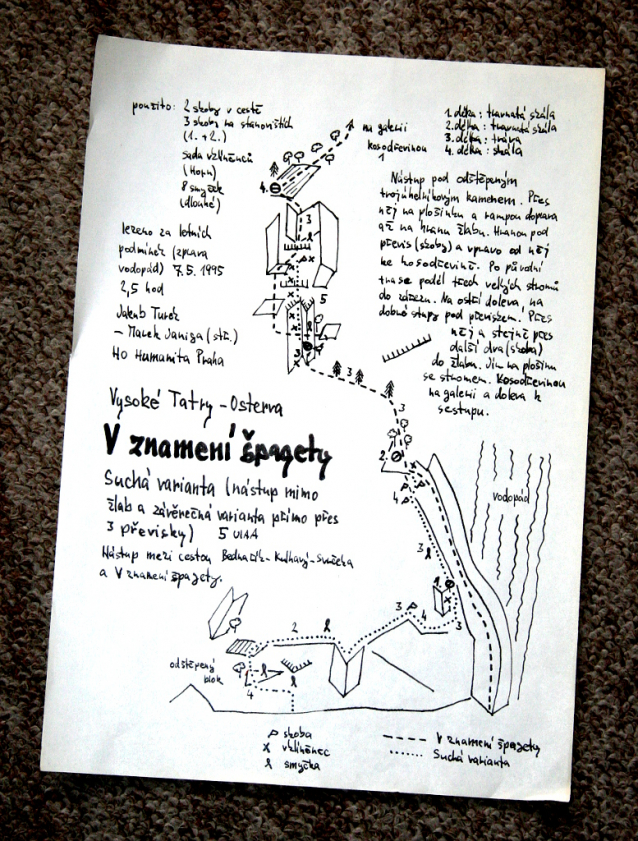 použito: 2 skoby v cestě
3 skoby na stanovištích
(1. + 2.)
sada vklíněnců
(Horn)
8 smyček
(dlouhé)
lezeno za letních
podmínek (zprava
vodopád) 7. 5. 1995
2,5 hod
Jakub Tureč
– Marek Janiga (stř.)
HO Humanita Praha
na galerii
kosodřevinou
1
1. délka: travnatá skála
2. délka: travnatá skála
3. délka: tráva
4. délka: skála
Nástup pod odštěpeným
trojúhelníkovým kamenem. Přes
něj na plošinku a rampou doprava
až na hranu žlabu. Hranou pod
převis (skoby) a vpravo od něj
ke kosodřevině. Po původní
trase podél třech velkých stromů
do zářezu. Na ostří doleva, na
dobré stupy pod převisem. Přes
něj a stejně přes
další dva (skoba)
do žlabu. Jím na plošinu
se stromem. Kosodřevinou
na galerii a doleva k
sestupu.
4.
3
5
3
3
Vysoké Tatry – Osterva
V znamení špagety
Suchá varianta (nástup mimo
žlab a závěrečná varianta přímo přes
3 převisky) 5 UIAA
Nástup mezi cestou Bednařík-Kulhavý-Svička
a V znamení špagety.
2.
4
3
vodopád
1.
3
4
3
2
odštěpený
blok
4
skoba
vklíněnec
smyčka
V znamení špagety
Suchá varianta